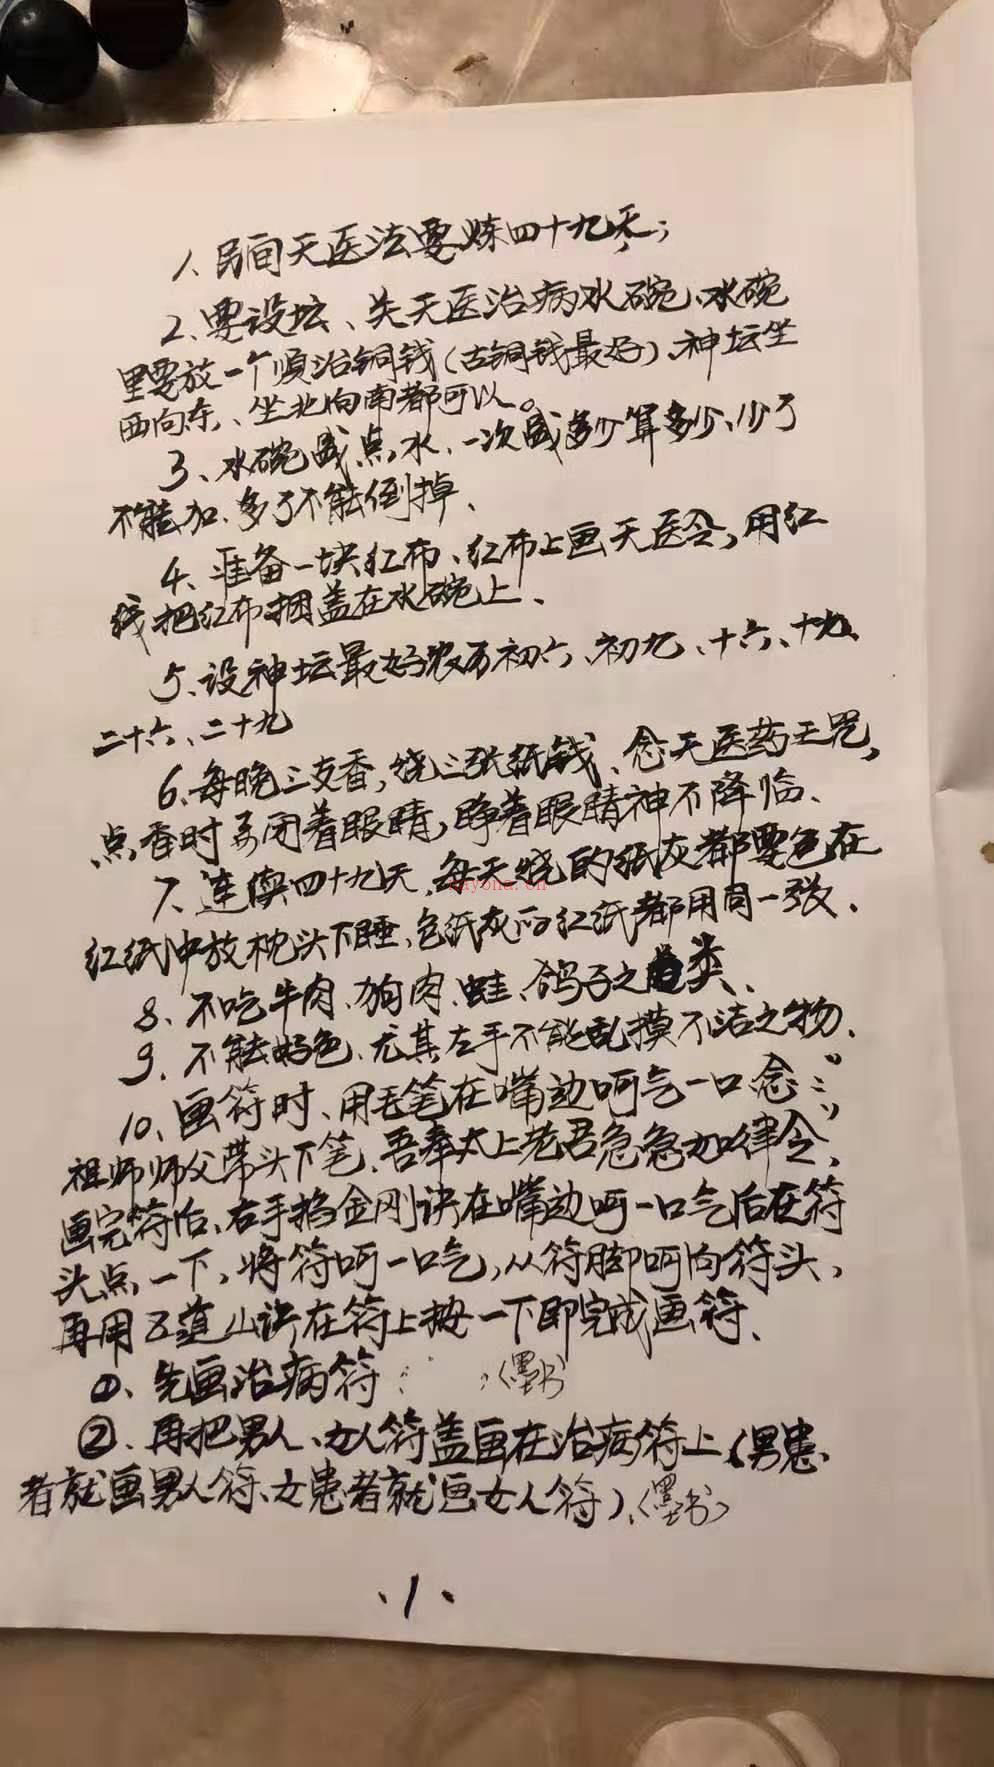 1、民间天医法要炼四十九天；
2、要设坛、关天医治病水碗、水碗
里要放一个顺治铜钱（古铜钱最好）、神坛坐
西向东、坐北向南都可以。
3、水碗盛点水、一次盛多少算多少、少了
不能加、多了不能倒掉、
4、准备一块红布、红布上画天医令，用红
线把红布捆盖在水碗上、
5、设神坛最好农历初六、初九、十六、十九、
二十六、二十九
6、每晚三支香，烧三张纸钱、念天医药王咒，
点香时要闭着眼睛，睁着眼睛神不降临、
7、连续四十九天、每天烧的纸灰都要包在
红纸中放枕头下睡、包纸灰的红纸都用同一张、
8、不吃牛肉、狗肉、蛙、鸽子之类、
9、不能好色、尤其左手不能乱摸不洁之物、
10、画符时、用毛笔在嘴边呵气一口念：“
祖师师父带头下笔、吾奉太上老君急急如律令”，
画完符后、右手掐金刚诀在嘴边呵一口气后在符
头点一下，将符呵一口气，从符脚呵向符头，
再用五道山诀在符上按一下即完成画符、
①、先画治病符 （墨书）
②、再把男人、女人符盖画在治病符上（男患
者就画男人符、女患者就画女人符）、（墨书）
kayona.cn
·1·